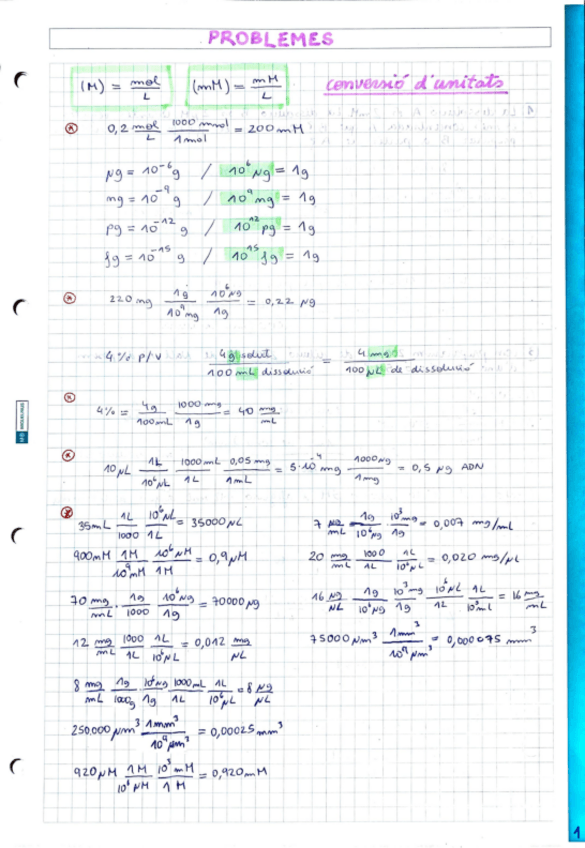 PROBLEMES
(M) = mol/L (mM) = mM/L conversió d'unitats
0,2 mol/L 1000 mmol/1 mol = 200 mM
µg = 10⁻⁶ g / 10⁶ µg = 1g
ng = 10⁻⁹ g / 10⁹ ng = 1g
pg = 10⁻¹² g / 10¹² pg = 1g
fg = 10⁻¹⁵ g / 10¹⁵ fg = 1g
220 ng 1g/10⁹ ng 10⁶ µg/1g = 0,22 µg
4% P/V 4g solut/100 mL dissolució = 4 mg/100 µL de dissolució
4% = 4g/100mL 1000 mg/1g = 40 mg/mL
10 µL 1L/10⁶ µL 1000 mL/1L 0,05 mg/1mL = 5·10⁻⁴ mg 1000 µg/1mg = 0,5 µg ADN
35mL 1L/1000 10⁶ µL/1L = 35000 µL
900nM 1M/10⁹ nM 10⁶ µM/1M = 0,9 µM
70 mg/mL · 1g/1000 10⁶ µg/1g = 70000 µg
12 mg/mL 1000/1L 1L/10⁶ µL = 0,012 mg/µL
8 mg/mL 1g/1000g 10⁶ µg/1g 1000mL/1L 1L/10⁶ µL = 8 µg/µL
250.000 µm³ 1mm³/10⁹ µm³ = 0,00025 mm³
920 µM 1M/10⁶ µM 10³ mM/1M = 0,920 mM
7 µg/mL 1g/10⁶ µg 10³ mg/1g = 0,007 mg/mL
20 mg/mL 1000/1L 1L/10⁶ µL = 0,020 mg/µL
16 µg/µL 1g/10⁶ µg 10³ mg/1g 10⁶ µL/1L 1L/10³ mL = 16 mg/mL
75000 µm³ 1mm³/10⁹ µm³ = 0,000075 mm³
1